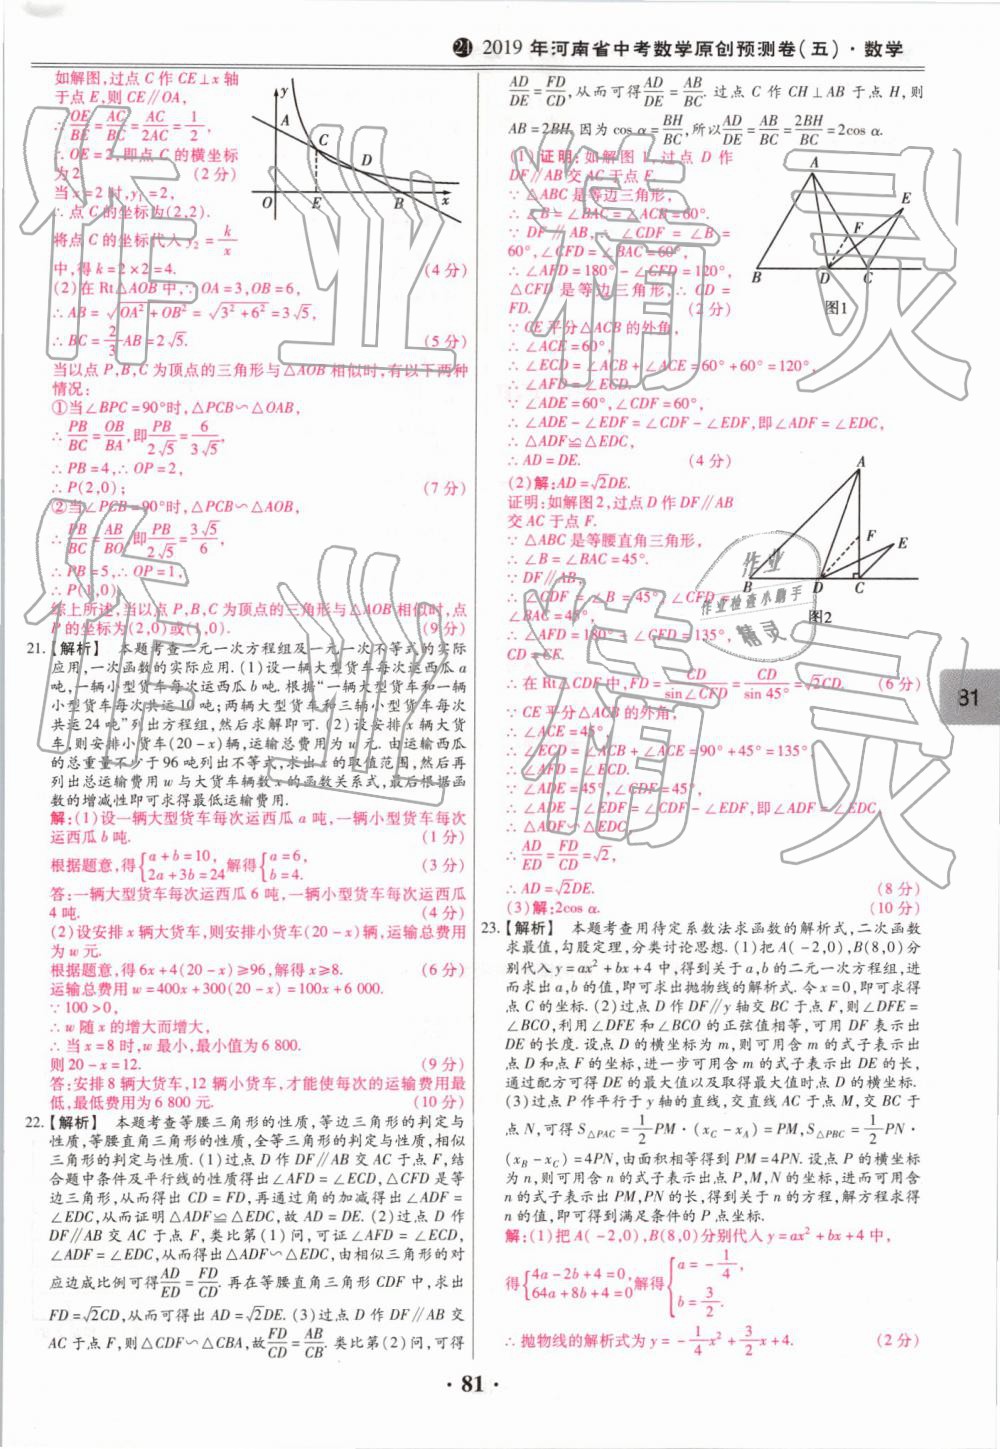 ㉔ 2019年河南省中考数学原创预测卷(五)·数学
如解图,过点C作CE⊥x轴
于点E,则CE∥OA,
∴OE/BE=AC/BC=AC/2AC=1/2,
∴OE=2,即点C的横坐标
为2. (2分)
当x=2时,y₁=2,
∴点C的坐标为(2,2).
将点C的坐标代入y₂=k/x
中,得k=2×2=4. (4分)
(2)在Rt△AOB中,∵OA=3,OB=6,
∴AB=√(OA²+OB²)=√(3²+6²)=3√5,
∴BC=2/3AB=2√5. (5分)
当以点P,B,C为顶点的三角形与△AOB相似时,有以下两种
情况:
①当∠BPC=90°时,△PCB∽△OAB,
∴PB/BC=OB/BA,即PB/2√5=6/3√5,
∴PB=4,∴OP=2,
∴P(2,0); (7分)
②当∠PCB=90°时,△PCB∽△AOB,
∴PB/BC=AB/BO,即PB/2√5=3√5/6,
∴PB=5,∴OP=1,
∴P(1,0).
综上所述,当以点P,B,C为顶点的三角形与△AOB相似时,点
P的坐标为(2,0)或(1,0). (9分)
21.【解析】 本题考查二元一次方程组及一元一次不等式的实际
应用,一次函数的实际应用.(1)设一辆大型货车每次运西瓜a
吨,一辆小型货车每次运西瓜b吨.根据“一辆大型货车和一辆
小型货车每次共运10吨;两辆大型货车和三辆小型货车每次
共运24吨”列出方程组,然后求解即可.(2)设安排x辆大货
车,则安排小货车(20-x)辆,运输总费用为w元.由运输西瓜
的总重量不少于96吨列出不等式,求出x的取值范围,然后再
列出总运输费用w与大货车辆数x的函数关系式,最后根据函
数的增减性即可求得最低运输费用.
解:(1)设一辆大型货车每次运西瓜a吨,一辆小型货车每次
运西瓜b吨. (1分)
根据题意,得{a+b=10, 2a+3b=24 解得{a=6, b=4. (3分)
答:一辆大型货车每次运西瓜6吨,一辆小型货车每次运西瓜
4吨. (4分)
(2)设安排x辆大货车,则安排小货车(20-x)辆,运输总费用
为w元.
根据题意,得6x+4(20-x)≥96,解得x≥8. (6分)
运输总费用w=400x+300(20-x)=100x+6 000.
∵100>0,
∴w随x的增大而增大,
∴当x=8时,w最小,最小值为6 800.
则20-x=12. (9分)
答:安排8辆大货车,12辆小货车,才能使每次的运输费用最
低,最低费用为6 800元. (10分)
22.【解析】 本题考查等腰三角形的性质,等边三角形的判定与
性质,等腰直角三角形的性质,全等三角形的判定与性质,相似
三角形的判定与性质.(1)过点D作DF∥AB交AC于点F,结
合题中条件及平行线的性质得出∠AFD=∠ECD,△CFD是等
边三角形,从而得出CD=FD,再通过角的加减得出∠ADF=
∠EDC,从而证明△ADF≌△EDC,故AD=DE.(2)过点D作
DF∥AB交AC于点F,类比第(1)问,可证∠AFD=∠ECD,
∠ADF=∠EDC,从而得出△ADF∽△EDC,由相似三角形的对
应边成比例可得AD/ED=FD/CD.再在等腰直角三角形CDF中,求出
FD=√2CD,从而可得出AD=√2DE.(3)过点D作DF∥AB交
AC于点F,则△CDF∽△CBA,故FD/CD=AB/CB.类比第(2)问,可得
AD/DE=FD/CD,从而可得AD/DE=AB/BC.过点C作CH⊥AB于点H,则
AB=2BH.因为cos α=BH/BC,所以AD/DE=AB/BC=2BH/BC=2cos α.
(1)证明:如解图1,过点D作
DF∥AB交AC于点F.
∵△ABC是等边三角形,
∴∠B=∠BAC=∠ACB=60°.
∵DF∥AB,∴∠CDF=∠B=
60°,∠CFD=∠BAC=60°,
∴∠AFD=180°-∠CFD=120°,
△CFD是等边三角形,∴CD=
FD. (2分)
∵CE平分△ACB的外角,
∴∠ACE=60°,
∴∠ECD=∠ACB+∠ACE=60°+60°=120°,
∴∠AFD=∠ECD.
∵∠ADE=60°,∠CDF=60°,
∴∠ADE-∠EDF=∠CDF-∠EDF,即∠ADF=∠EDC,
∴△ADF≌△EDC,
∴AD=DE. (4分)
(2)解:AD=√2DE.
证明:如解图2,过点D作DF∥AB
交AC于点F.
∵△ABC是等腰直角三角形,
∴∠B=∠BAC=45°.
∵DF∥AB,
∴∠CDF=∠B=45°,∠CFD=
∠BAC=45°,
∴∠AFD=180°-∠CFD=135°,
CD=CF.
∴在Rt△CDF中,FD=CD/sin∠CFD=CD/sin 45°=√2CD. (6分)
∵CE平分△ACB的外角,
∴∠ACE=45°,
∴∠ECD=∠ACB+∠ACE=90°+45°=135°,
∴∠AFD=∠ECD.
∵∠ADE=45°,∠CDF=45°,
∴∠ADE-∠EDF=∠CDF-∠EDF,即∠ADF=∠EDC,
∴△ADF∽△EDC,
∴AD/ED=FD/CD=√2,
∴AD=√2DE. (8分)
(3)解:2cos α. (10分)
23.【解析】 本题考查用待定系数法求函数的解析式,二次函数
求最值,勾股定理,分类讨论思想.(1)把A(-2,0),B(8,0)分
别代入y=ax²+bx+4中,得到关于a,b的二元一次方程组,进
而求出a,b的值,即可求出抛物线的解析式.令x=0,即可求得
点C的坐标.(2)过点D作DF∥y轴交BC于点F,则∠DFE=
∠BCO,利用∠DFE和∠BCO的正弦值相等,可用DF表示出
DE的长度.设点D的横坐标为m,则可用含m的式子表示出
点D和点F的坐标,进一步可用含m的式子表示出DE的长,
通过配方可得DE的最大值以及取得最大值时点D的横坐标.
(3)过点P作平行于y轴的直线,交直线AC于点M,交BC于
点N,可得S△PAC=1/2PM·(xC-xA)=PM,S△PBC=1/2PN·
(xB-xC)=4PN,由面积相等得到PM=4PN.设点P的横坐标
为n,则可用含n的式子表示出点P,M,N的坐标,进而可用含
n的式子表示出PM,PN的长,得到关于n的方程,解方程求得
n的值,即可得到满足条件的P点坐标.
解:(1)把A(-2,0),B(8,0)分别代入y=ax²+bx+4中,
得{4a-2b+4=0, 64a+8b+4=0 解得{a=-1/4, b=3/2.
∴抛物线的解析式为y=-1/4x²+3/2x+4. (2分)
y
A
C
D
O
E
B
x
A
E
F
B
D
C
图1
A
F
E
B
D
C
图2
作业
作业检查小助手
精灵
作业精灵
作业精灵
81
·81·